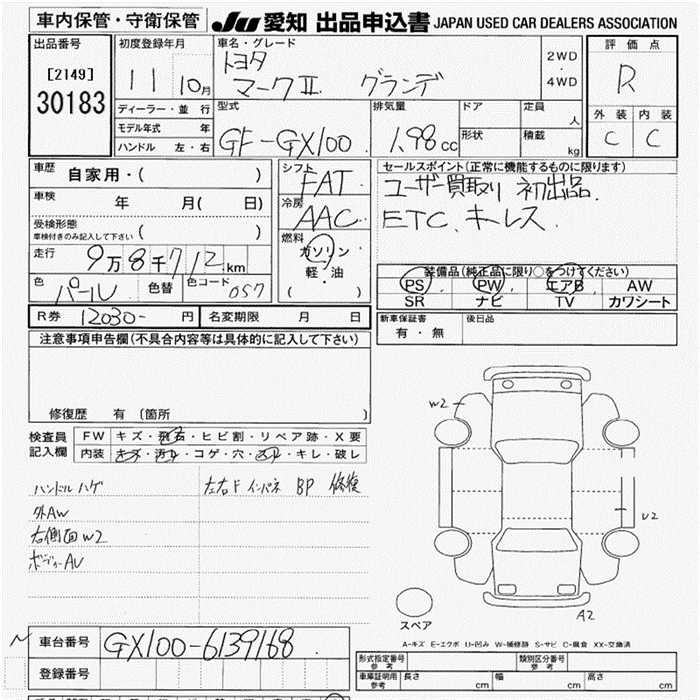 車内保管・守衛保管 JU 愛知 出品申込書 JAPAN USED CAR DEALERS ASSOCIATION
出品番号 初度登録年月 車名・グレード 2WD 評価点
[2149] 11 10月 トヨタ ・ R
30183 マークⅡ グランデ 4WD
ディーラー・並行 型式 排気量 ドア 定員 人 外装 内装
モデル年式 年 GF-GX100 1.98cc 形状 積載 kg C C
ハンドル 左・右
車歴 自家用・( ) シフト FAT セールスポイント(正常に機能するものに限ります)
車検 年 月( 日) 冷房 AAC ユーザー買取り 初出品.
受検形態 ( ) ETC. キーレス
車検付きのみ記入して下さい
走行 9万8千712km 燃料 ガソリン
軽・油
( )
色 パール 色替 色コード 057
装備品(純正品に限り○をつけてください)
PS PW エアB AW
SR ナビ TV カワシート
R券 12030- 円 名変期限 月 日 新車保証書 有・無 後日品
注意事項申告欄(不具合内容等は具体的に記入して下さい)
修復歴 有 (箇所 )
検査員 FW キズ・飛石・ヒビ割・リペア跡・X要
記入欄 内装 キズ・汚れ・コゲ・穴・スレ・キレ・破レ
ハンドルハゲ 左右F インパネ BP 修復
外AW
右側面W2
ボディーAU
W2
U2
A2
スペア
A-キズ E-エクボ U-凹み W-補修跡 S-サビ C-腐食 XX-交換済
車台番号 GX100-6139168
登録番号
形式指定番号 参考 類別区分番号 参考
車庫証明用 参考 長さ cm 幅 cm 高さ cm